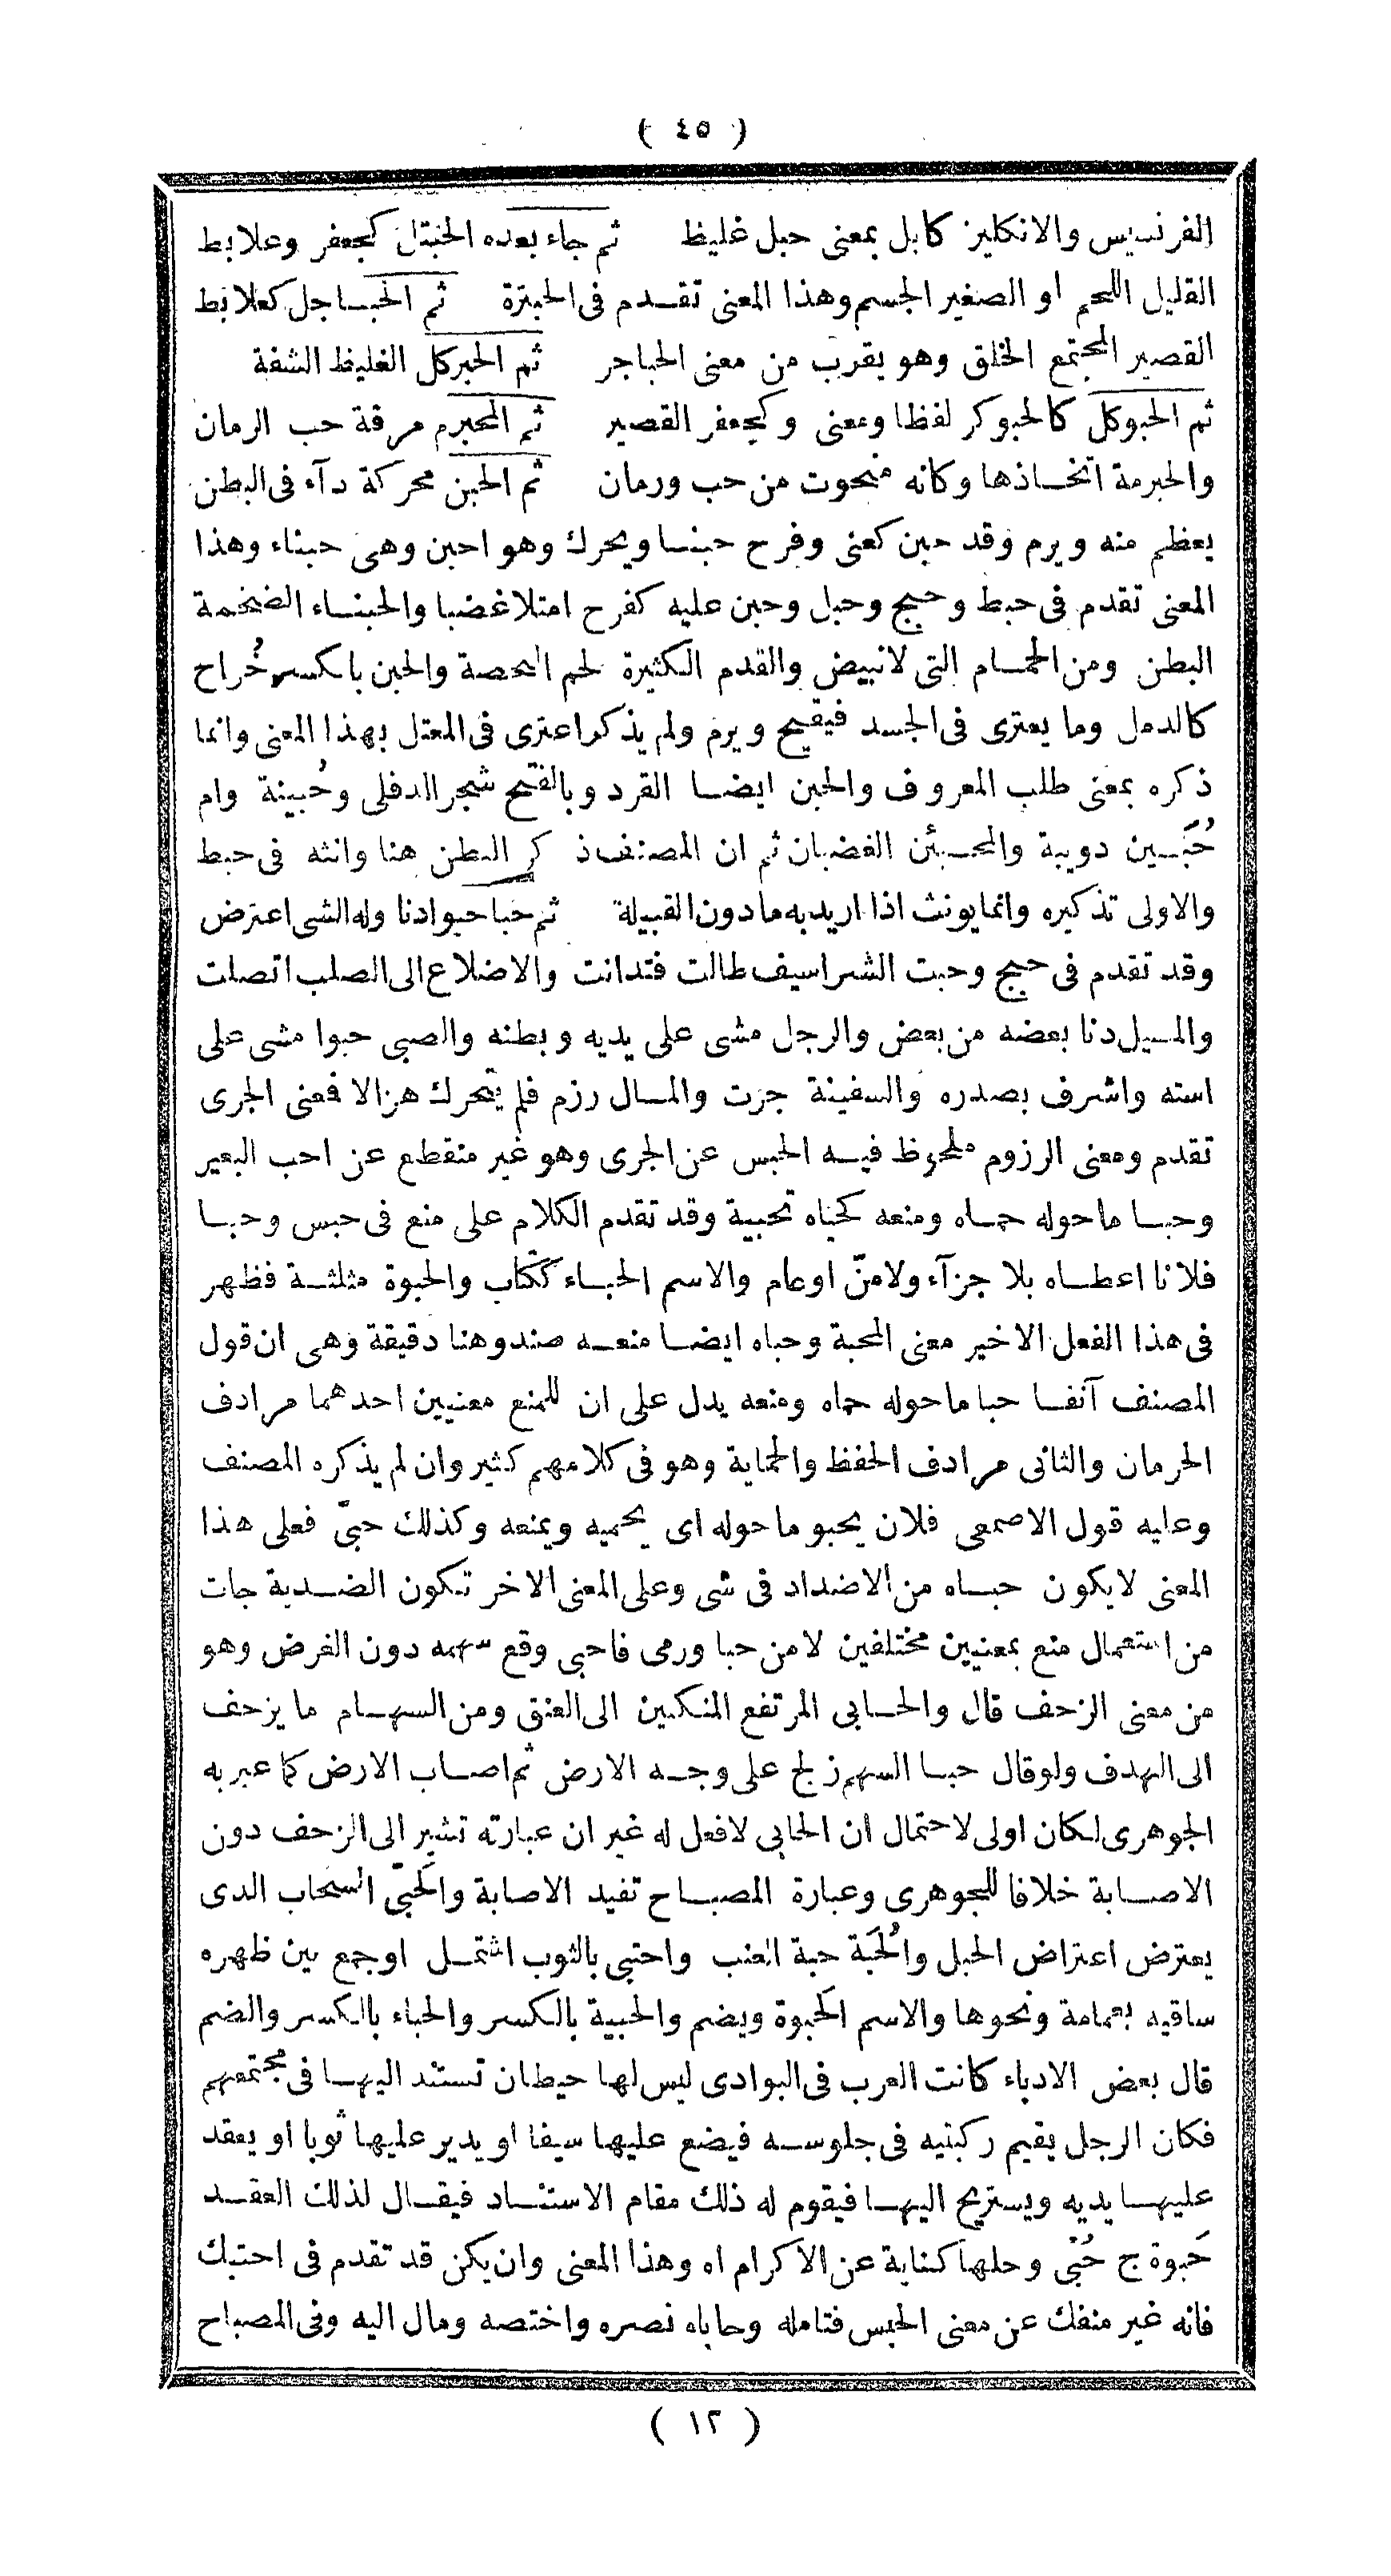 ( ٤٥ )
الفرنسيس والانكليز كابل بمعنى حبل غليظ ثم جاء بعده الحنبتل كجعفر وعلابط
القليل اللحم او الصغير الجسم وهذا المعنى تقدم فى الحبترة ثم الحباجل كعلابط
القصير المجتمع الخلق وهو يقرب من معنى الحباجر ثم الحبركل الغليظ الشفة
ثم الحبوكل كالحبوكر لفظا ومعنى وكجعفر القصير ثم المحبرم مرقة حب الرمان
والحبرمة اتخاذها وكانه منحوت من حب ورمان ثم الحبن محركة دآء فى البطن
يعظم منه ويرم وقد حبن كعنى وفرح حبنا ويحرك وهو احبن وهى حبناء وهذا
المعنى تقدم فى حبط وحبج وحبل وحبن عليه كفرح امتلا غضبا والحبناء الضخمة
البطن ومن الحمام التى لاتبيض والقدم الكثيرة لحم البخصة والحبن بالكسر خُراج
كالدمل وما يعترى فى الجسد فيقيح ويرم ولم يذكر اعترى فى المعتل بهذا المعنى وانما
ذكره بمعنى طلب المعروف والحبن ايضا القرد وبالفتح شجر الدفلى وحُبينة وام
حُبَين دويبة والمحبئن الغضبان ثم ان المصنف ذكر البطن هنا وانثه فى حبط
والاولى تذكيره وانما يونث اذا اريد به مادون القبيلة ثم حبا حبوا دنا وله الشى اعترض
وقد تقدم فى حبج وحبت الشراسيف طالت فتدانت والاضلاع الى الصلب اتصلت
والمسيل دنا بعضه من بعض والرجل مشى على يديه وبطنه والصبى حبوا مشى على
استه واشرف بصدره والسفينة جرت والمال رزم فلم يتحرك هزالا فمعنى الجرى
تقدم ومعنى الرزوم ملحوظ فيه الحبس عن الجرى وهو غير منقطع عن احب البعير
وحبا ماحوله حماه ومنعه كحباه تحبية وقد تقدم الكلام على منع فى حبس وحبا
فلانا اعطاه بلا جزآء ولامنّ اوعام والاسم الحباء ككتاب والحبوة مثلثة فظهر
فى هذا الفعل الاخير معنى المحبة وحباه ايضا منعه ضد وهنا دقيقة وهى ان قول
المصنف آنفا حبا ماحوله حماه ومنعه يدل على ان للمنع معنيين احدهما مرادف
الحرمان والثانى مرادف الحفظ والحماية وهو فى كلامهم كثير وان لم يذكره المصنف
وعليه قول الاصمعى فلان يحبو ماحوله اى يحميه ويمنعه وكذلك حبّى فعلى هذا
المعنى لايكون حباه من الاضداد فى شى وعلى المعنى الاخر تكون الضدية جات
من استعمال منع بمعنيين مختلفين لا من حبا ورمى فاحبى وقع سهمه دون الغرض وهو
من معنى الزحف قال والحابى المرتفع المنكبين الى العنق ومن السهام ما يزحف
الى الهدف ولوقال حبا السهم زلج على وجه الارض ثم اصاب الارض كما عبر به
الجوهرى لكان اولى لاحتمال ان الحابى لافعل له غير ان عبارته تشير الى الزحف دون
الاصابة خلافا للجوهرى وعبارة المصباح تفيد الاصابة والحَبىّ السحاب الدى
يعترض اعتراض الحبل والحُبَة حبة العنب واحتبى بالثوب اشتمل اوجمع بين ظهره
ساقيه بعمامة ونحوها والاسم الحَبوة ويضم والحبية بالكسر والحباء بالكسر والضم
قال بعض الادباء كانت العرب فى البوادى ليس لها حيطان تستند اليها فى مجتمعهم
فكان الرجل يقيم ركبتيه فى جلوسه فيضع عليها سيفا او يدير عليها ثوبا او يعقد
عليها يديه ويستريح اليها فيقوم له ذلك مقام الاستناد فيقال لذلك العقد
حَبوة ج حُبّى وحلها كناية عن الاكرام اه وهذا المعنى وان يكن قد تقدم فى احتبك
فانه غير منفك عن معنى الحبس فتامله وحاباه نصره واختصه ومال اليه وفى المصباح
( ١٢ )